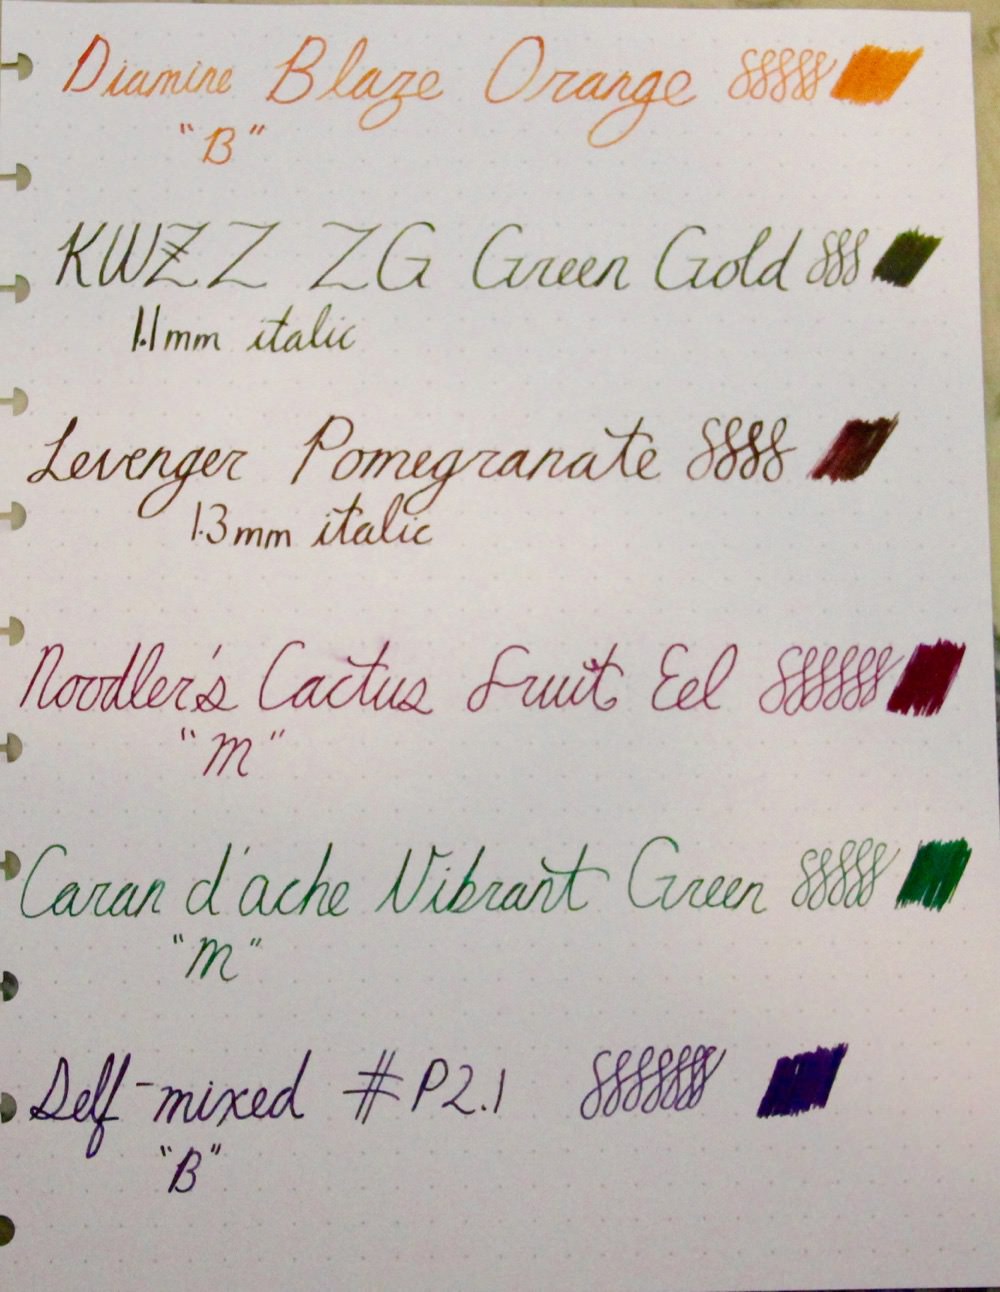 Diamine Blaze Orange
"B"
KWZZ ZG Green Gold
1.1mm italic
Levenger Pomegranate
1.3mm italic
Noodler's Cactus Fruit Eel
"M"
Caran d'ache Vibrant Green
"M"
Self-mixed #P2.1
"B"